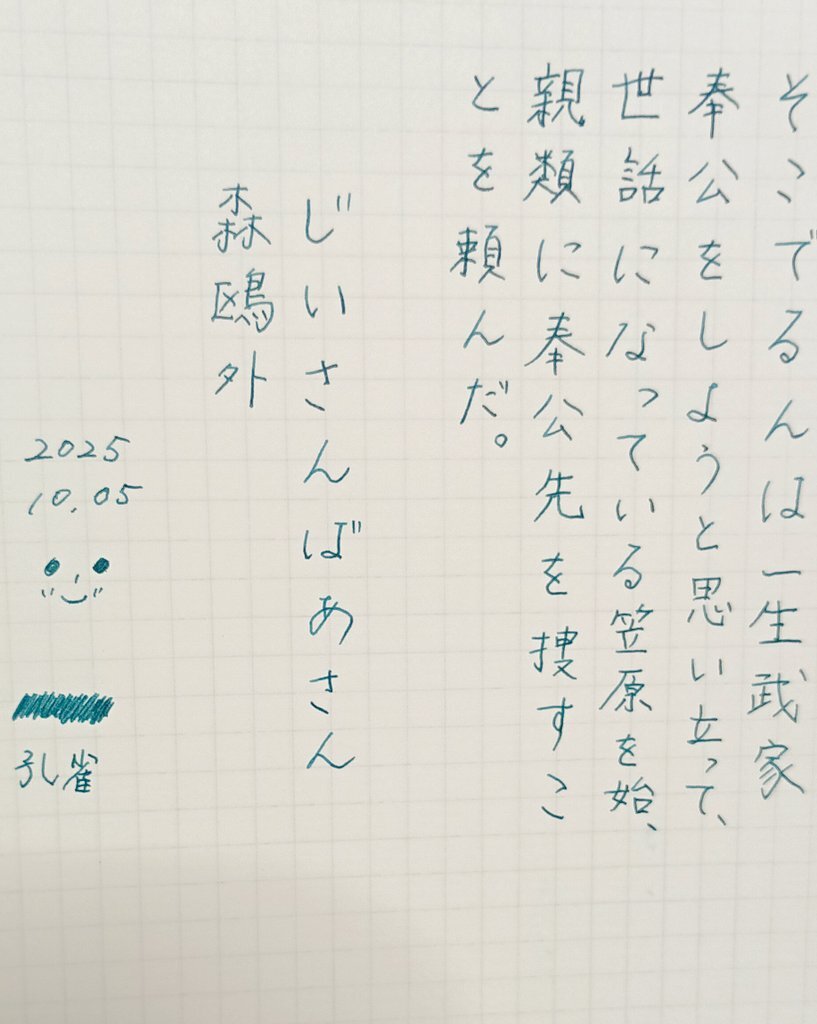 そこでるんは一生武家
奉公をしようと思い立って、
世話になっている笠原を始、
親類に奉公先を捜すこ
とを頼んだ。
じいさんばあさん
森鴎外
2025
10.05
孔雀